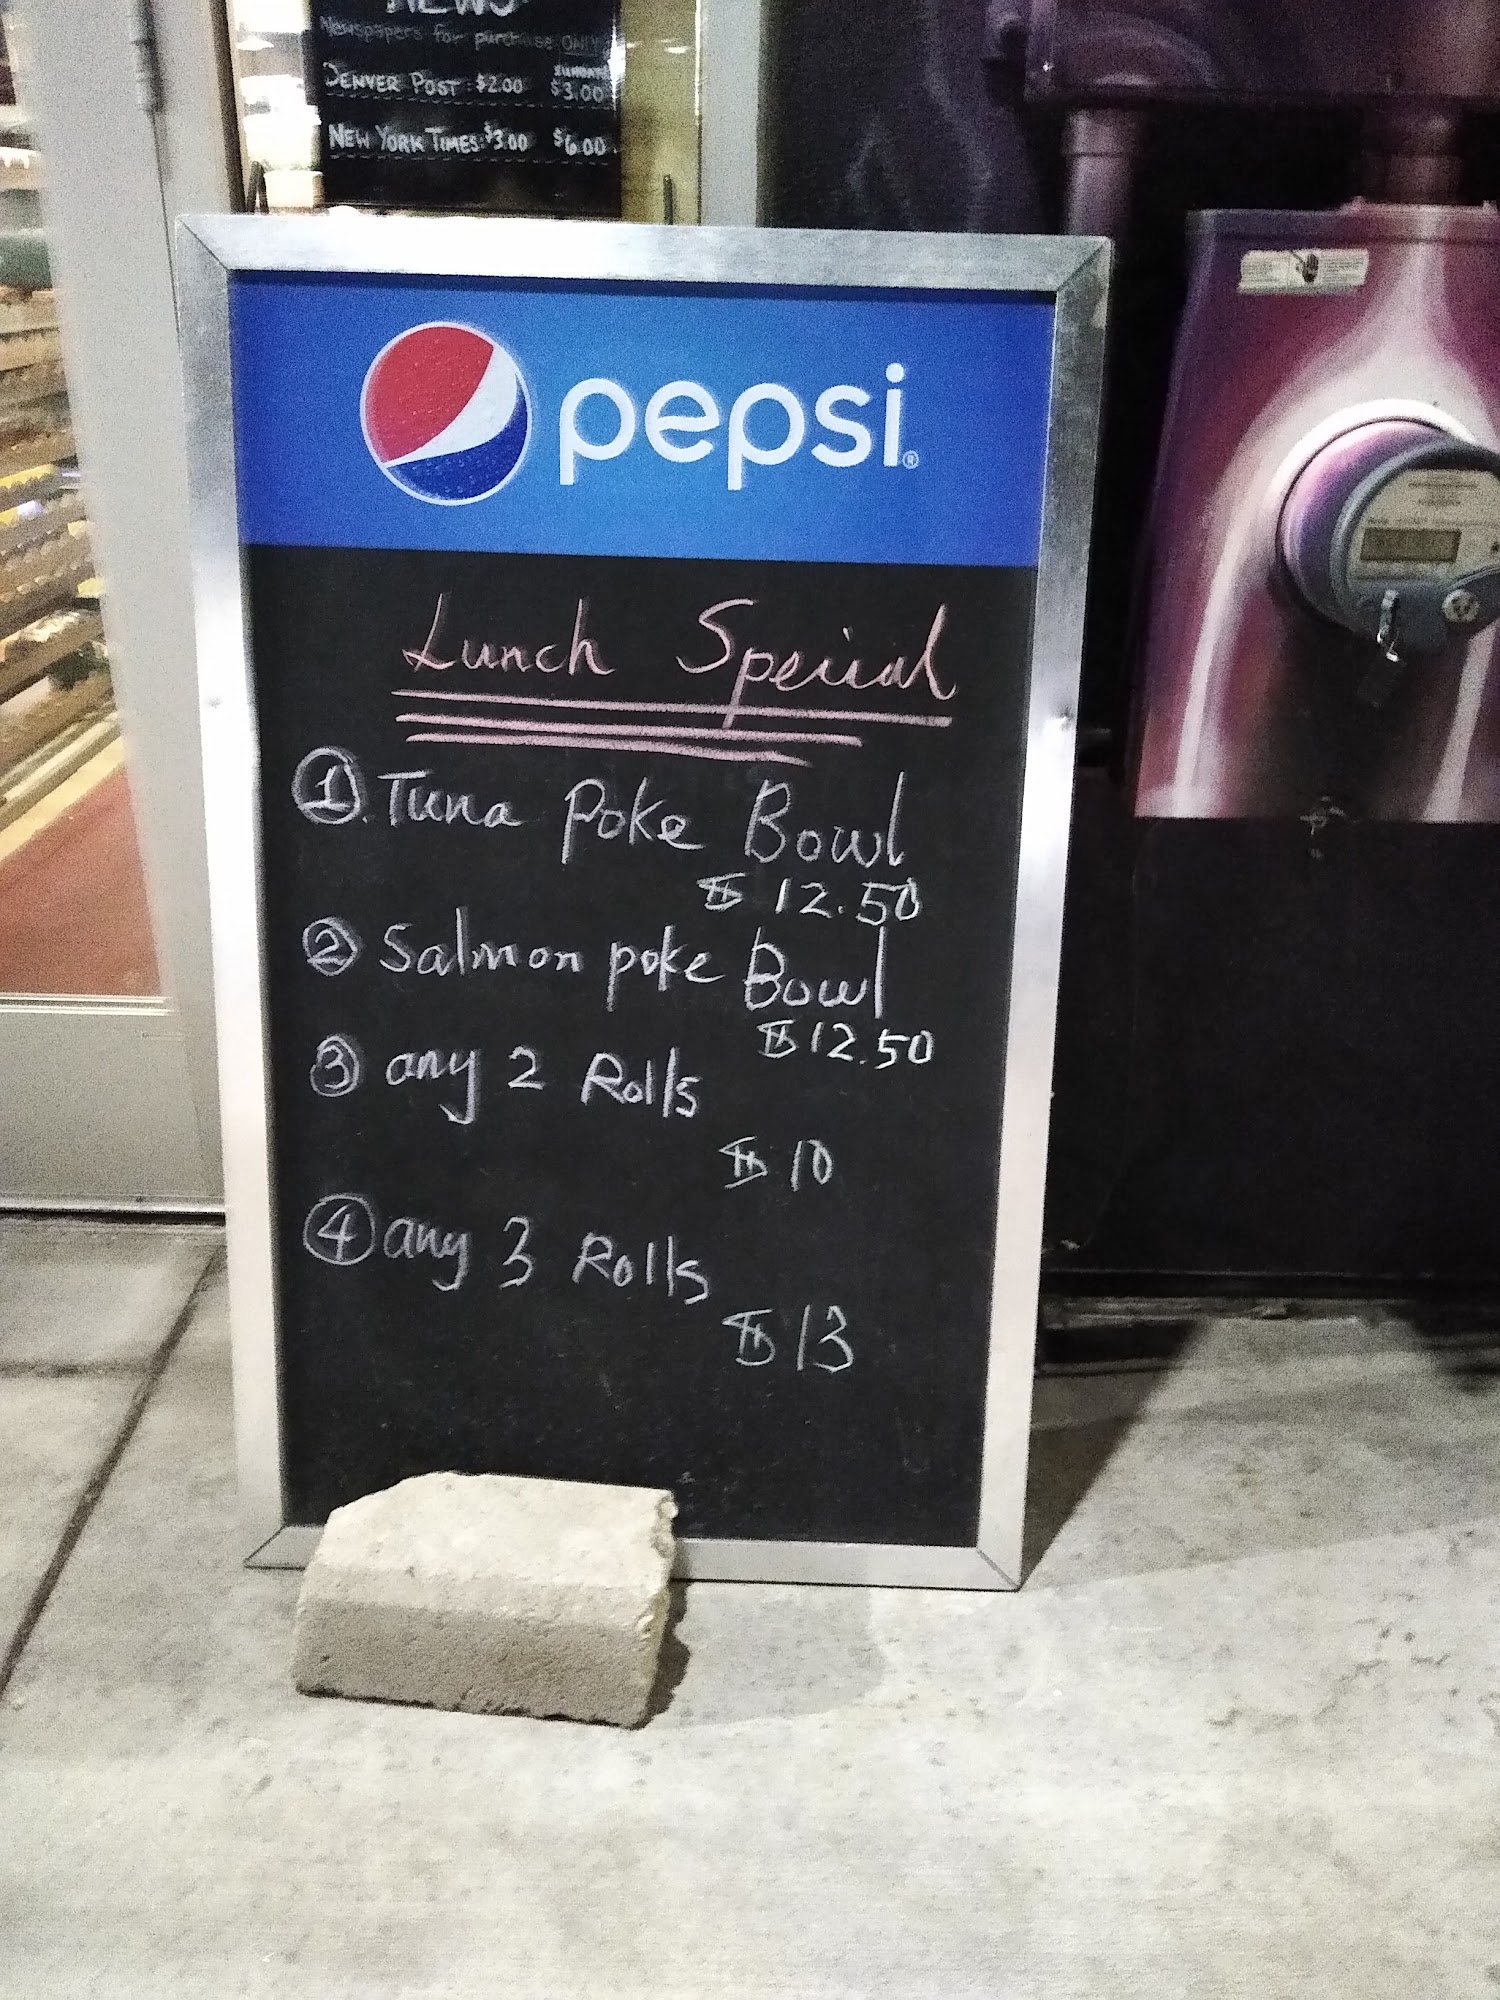 NEWS
Newspapers for purchase ONLY
SUNDAY
DENVER POST: $2.00 $3.00
NEW YORK TIMES: $3.00 $6.00
pepsi®
Lunch Special
① Tuna Poke Bowl
$12.50
② Salmon poke Bowl
$12.50
③ any 2 Rolls
$10
④ any 3 Rolls
$13